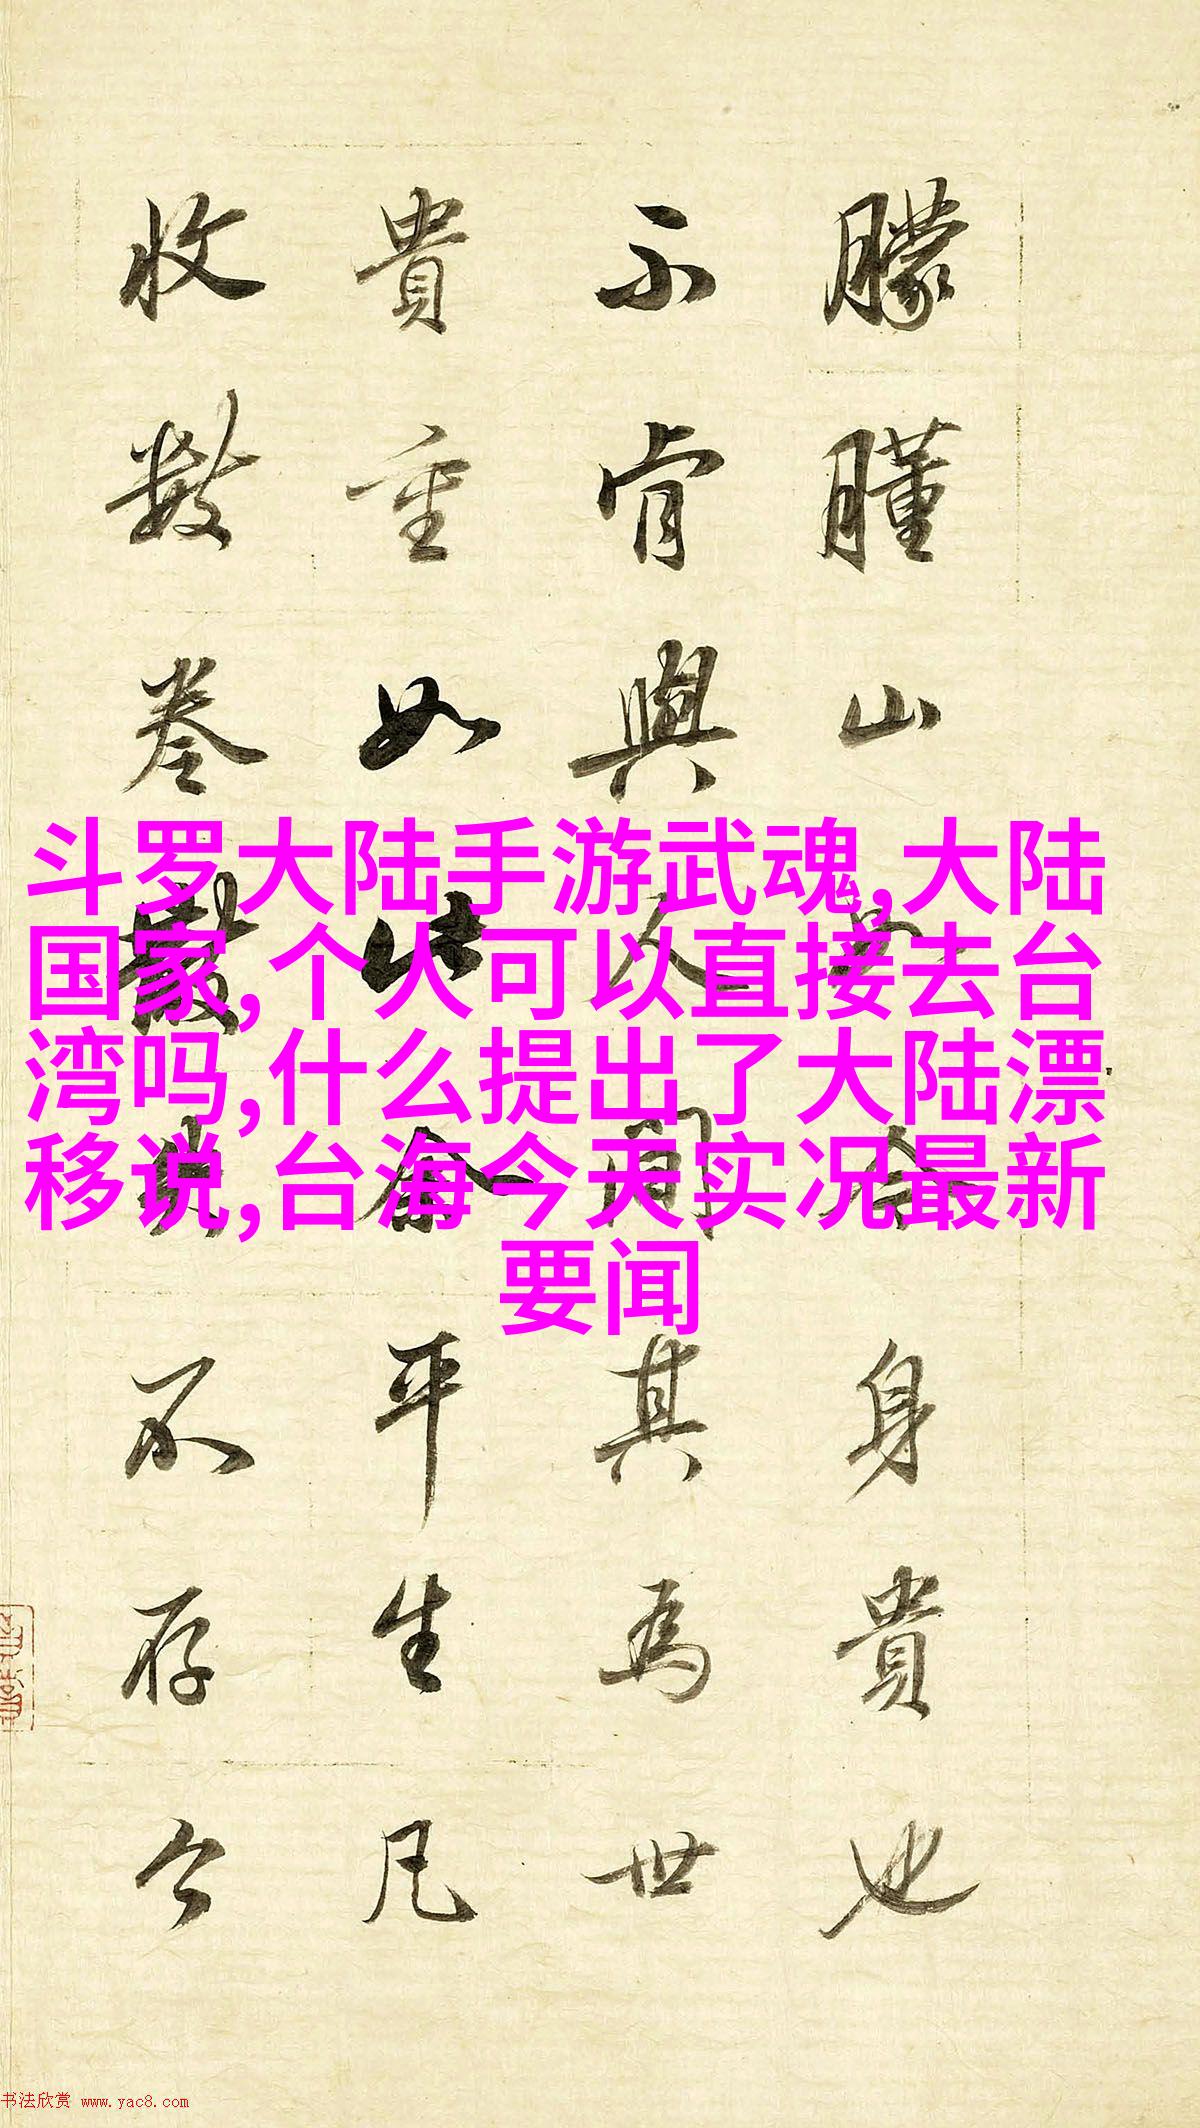 朦朣山身貴也
不肯與人間其為世
貴重如此余平生凡
收數卷不存今
斗罗大陆手游武魂,大陆
国家,个人可以直接去台
湾吗,什么提出了大陆漂
移说,台海今天实况最新
要闻
书法欣赏 www.yac8.com